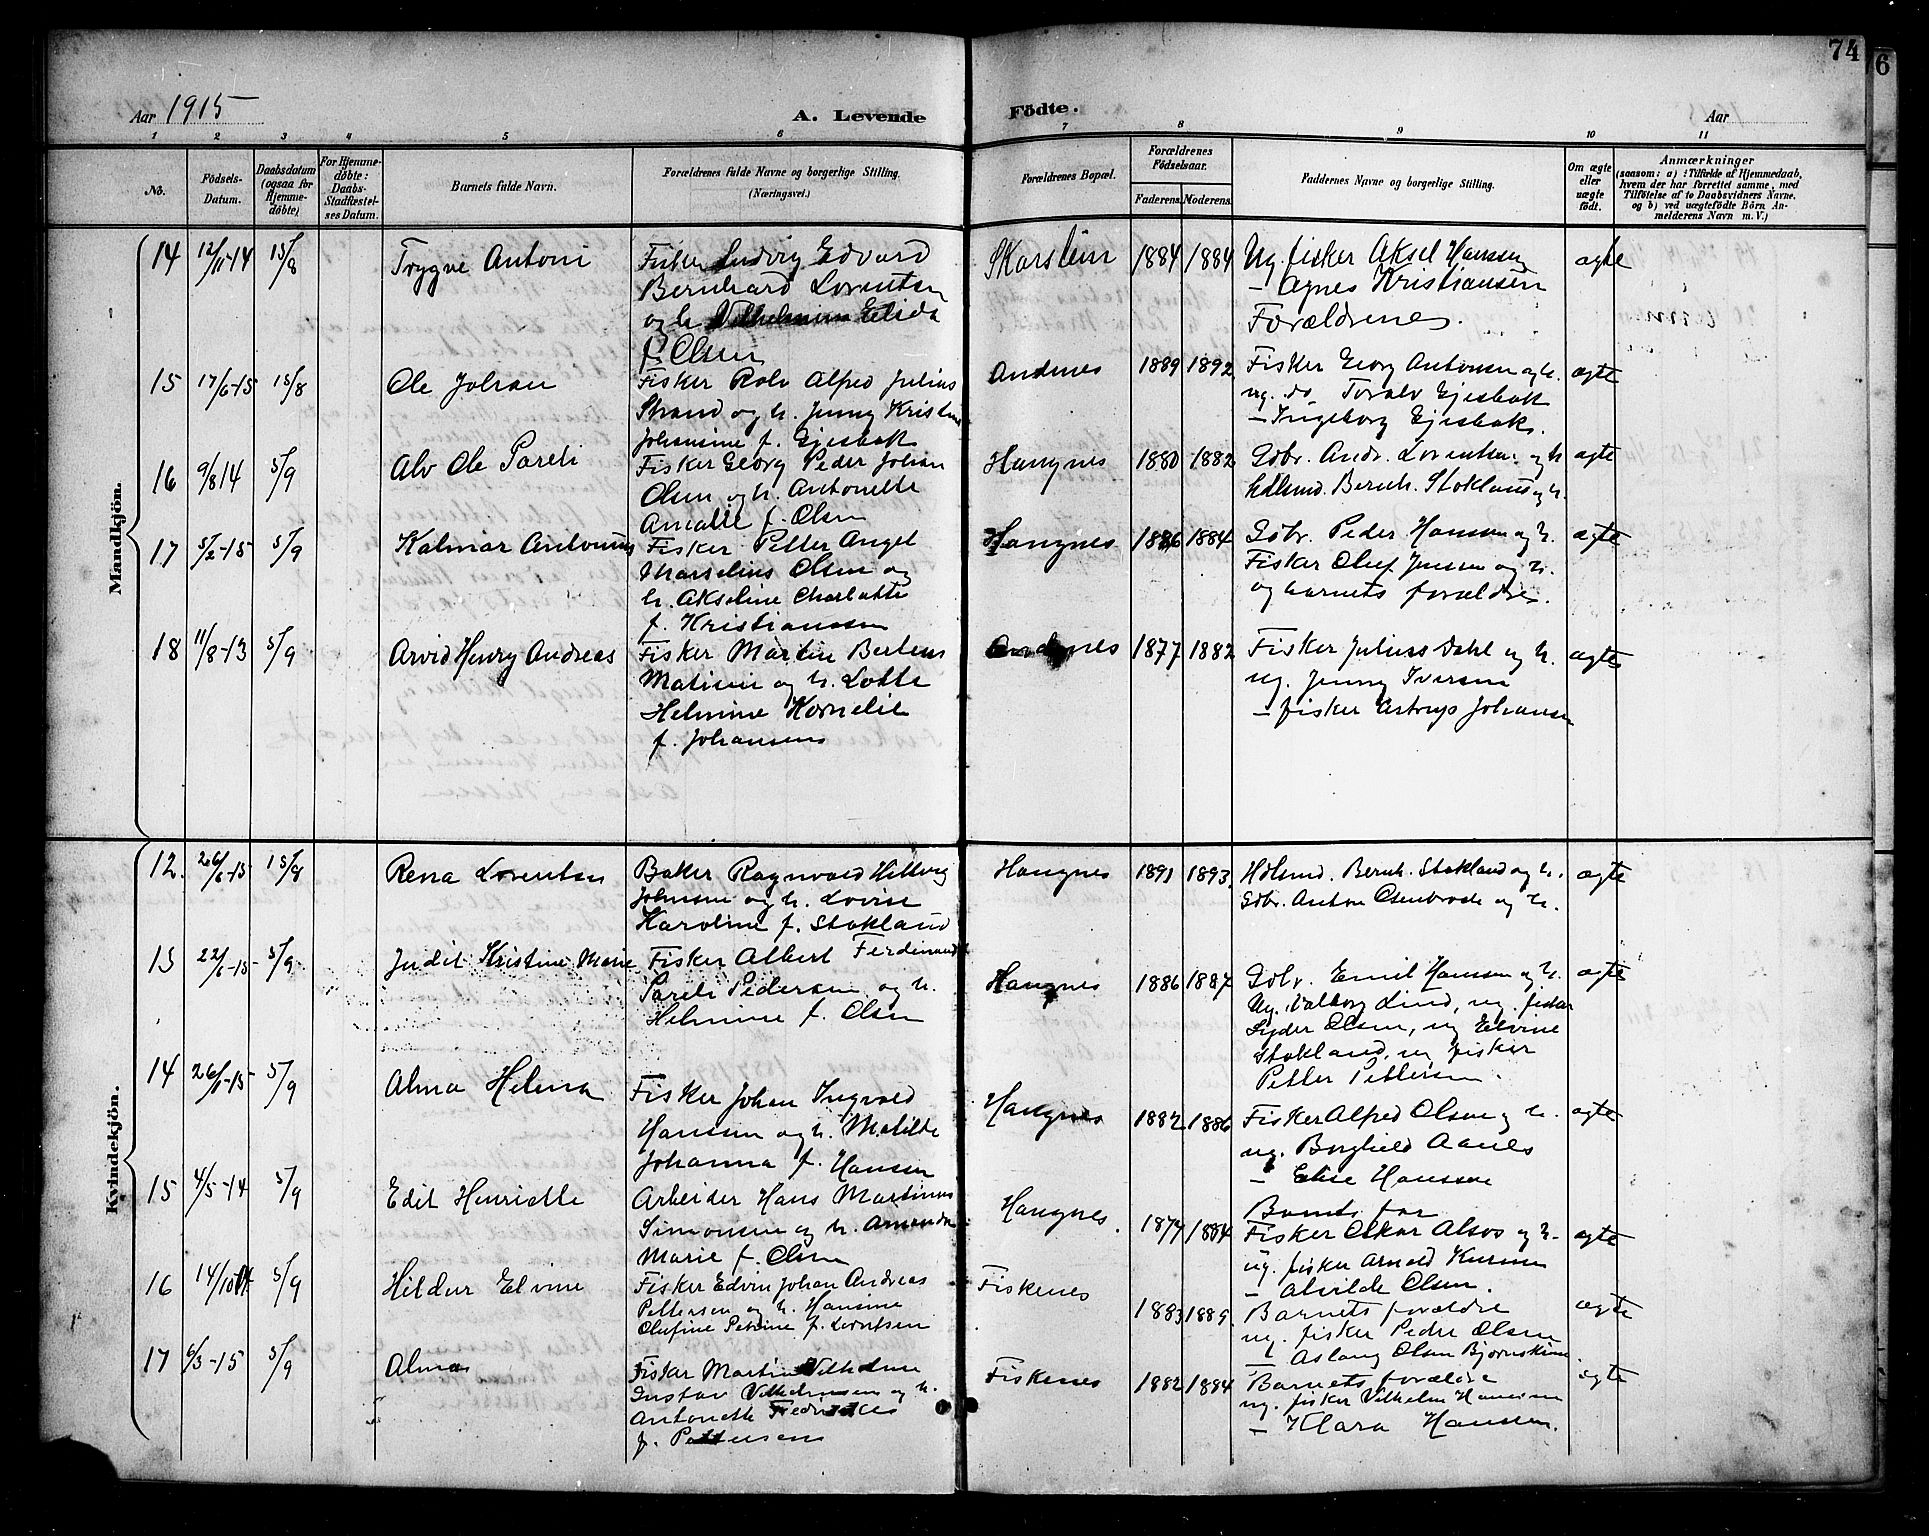 74
6
Aar 1915
A. Levende Födte.
Aar
1 2 3 4 5 6 7 8 9 10 11
No.
Födsels-Datum.
Daabsdatum (ogsaa for Hjemmedøbte)
For Hjemmedøbte: Daabs-Stadfæstelses Datum.
Barnets fulde Navn.
Forældrenes fulde Navne og borgerlige Stilling.
(Næringsvei.)
Forældrenes Bopæl.
Forældrenes Födselsaar.
Faderens. Moderens.
Faddernes Navne og borgerlige Stilling.
Om ægte eller uægte födt.
Anmærkninger
(saasom: a) i Tilfælde af Hjemmedaab, hvem der har forrettet samme, med Tilföielse af to Daabsvidners Navne, og b) ved uægtefödte Börn Anmelderens Navn m. V.)
Mandkjön.
14 12/11-14 15/8 Trygve Antoni Fisker Ludvig Edvard
Bernhard Lorentsen
og h. Vilhelmine Elida
f. Olsen
Skarstein 1884 1884 Ug. fisker Aksel Hansen
— Agnes Kristiansen
Forældrenes.
ægte
15 17/6-15 15/8 Ole Johan Fisker Rolv Alfred Julius
Strand og h. Jenny Kristine
Johansine f. Gjesbak
Andenes 1889 1892 Fisker Georg Antonsen og h.
ug. do Toralv Gjesbak
— Ingeborg Gjesbak.
ægte
16 9/8 14 5/9 Alv Ole Pareli Fisker Georg Peder Johan
Olsen og h. Antonette
Amalie f. Olsen
Haugnes 1880 1882 Gdbr. Andr. Lorentsen og h
Hdlsmd. Bernh. Stokland og h.
ægte
17 5/2-15 5/9 Kalmar Antonius Fisker Petter Angel
Marselius Olsen og
h. Akseline Charlotte
f. Kristiansen
Haugnes 1886 1884 Gdbr. Peder Hansen og h.
Fisker Oluf Jensen og h.
og barnets forældre.
ægte
18 11/8-13 5/9 Arvid Henry Andreas Fisker Martin Bertens
Matisen og h. Lotte
Helmine Kornelie
f. Johansens
Andenes 1877 1882 Fisker Julius Dahl og h.
ug. Jenny Iversen
— fisker Astrup Johansen
ægte
Kvindekjön.
12. 26/6-15 15/8 Rena Lorentsen Baker Ragnvald Hilberg
Johnsen og h. Lovise
Karoline f. Stokland
Haugnes 1891 1893. Hdlsmd. Bernh. Stokland og h.
Gdbr. Anton Osenbrode og h.
ægte
13 22/6-15 5/9 Judit Kristine Marie Fisker Albert Ferdinand
Pareli Pedersen og h.
Helmine f. Olsen
Haugnes 1886 1887 Gdbr. Emil Hansen og h.
Ug. Valborg Lind, ug. fisker
Syder Olsen, ug Elvine
Stokland, ug fisker
Petter Pettersen.
ægte
14 26/1-15 5/9 Alma Helena Fisker Johan Ingvald
Hansen og h. Matilde
Johanna f. Hansen
Haugnes 1882 1886 Fisker Alfred Olsen og h.
ug. Borghild Aanes
— Elise Hanssen
Barnets far
ægte
15 4/5-14 5/9 Edit Henriette Arbeider Hans Martinus
Simonsen og h. Amanda
Marie f. Olsen
Haugnes. 1877 1884 Fisker Oskar Alsos og h.
ug. fisker Arnold
— Alvilde Olsen.
ægte
16 14/10 14 5/9 Hildur Elvine Fisker Edvin Johan Andreas
Pettersen og h. Hansine
Olufine Petrine f. Lorntsen
Fiskenes 1883 1889. Barnets forældre
ug. fisker Peder Olsen
— Aslaug Olsen Bjørnskinn
ægte
17 6/3-15 5/9 Alma Fisker Martin Vilhelm
Gustav Vilhelmsen og h.
Antonette Fredrikkes
f. Pettersen
Fiskenes 1882 1884 Barnets forældre
ug. fisker Vilhelm Hansen
— Klara Hansen.
ægte